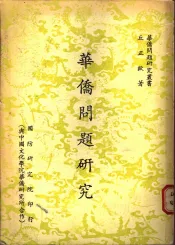 華僑問題研究叢書
丘正歐著
華僑問題研究
國防研究院印行
(與中國文化學院華僑研究所合作)